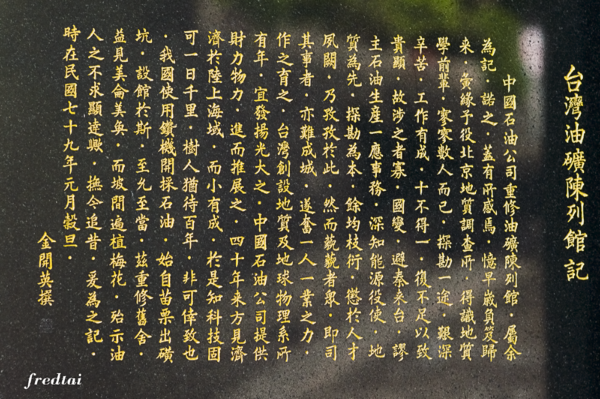 台灣油礦陳列館記
中國石油公司重修油礦陳列館．屬余
為記．諾之．蓋有所感焉．憶早歲負笈歸
來．夤緣予役北京地質調查所．得識地質
學前輩．寥寥數人而已．探勘一途．艱深
辛苦．工作有成．十不得一．復不足以致
貴顯．故涉之者寡．國變．避秦來台．謬
主石油生産一應事務．深知能源役使．地
質為先．探勘為本．餘均枝衍．慭於人才
夙闕．乃孜孜於此．然而藐藐者眾．即司
其事者．亦難成城．遂奮一人一業之力．
作之育之．台灣創設地質及地球物理系所
有年．宜發揚光大之．中國石油公司提供
財力物力．進而推展之．四十年來方見濟
濟於陸上海域．而小有成．於是知科技固
可一日千里．樹人猶待百年．非可倖致也
．我國使用鑽機開採石油．始自苗栗出磺
坑．設館於斯．至允至當．茲重修舊舍．
益見美侖美奐．而坡間遍植梅花．殆示油
人之不求顯達歟．撫今追昔．爰為之記．
時在民國七十九年元月穀旦．
金開英撰
fredtai